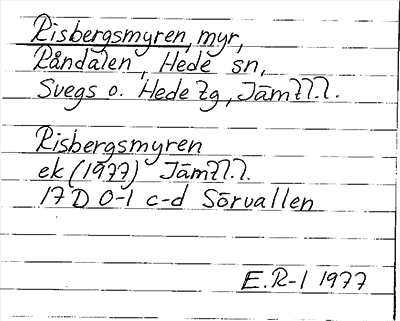 Risbergsmyren, myr,
Råndalen, Hede sn,
Svegs o. Hede tg, Jämtl.l.
Risbergsmyren
ek (1977) Jämtl.l.
17 D 0-1 c-d Sörvallen
E.R-l 1977